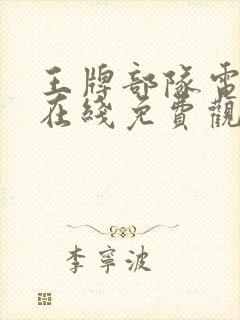 王牌部隊電
在綫免費觀
李寧波